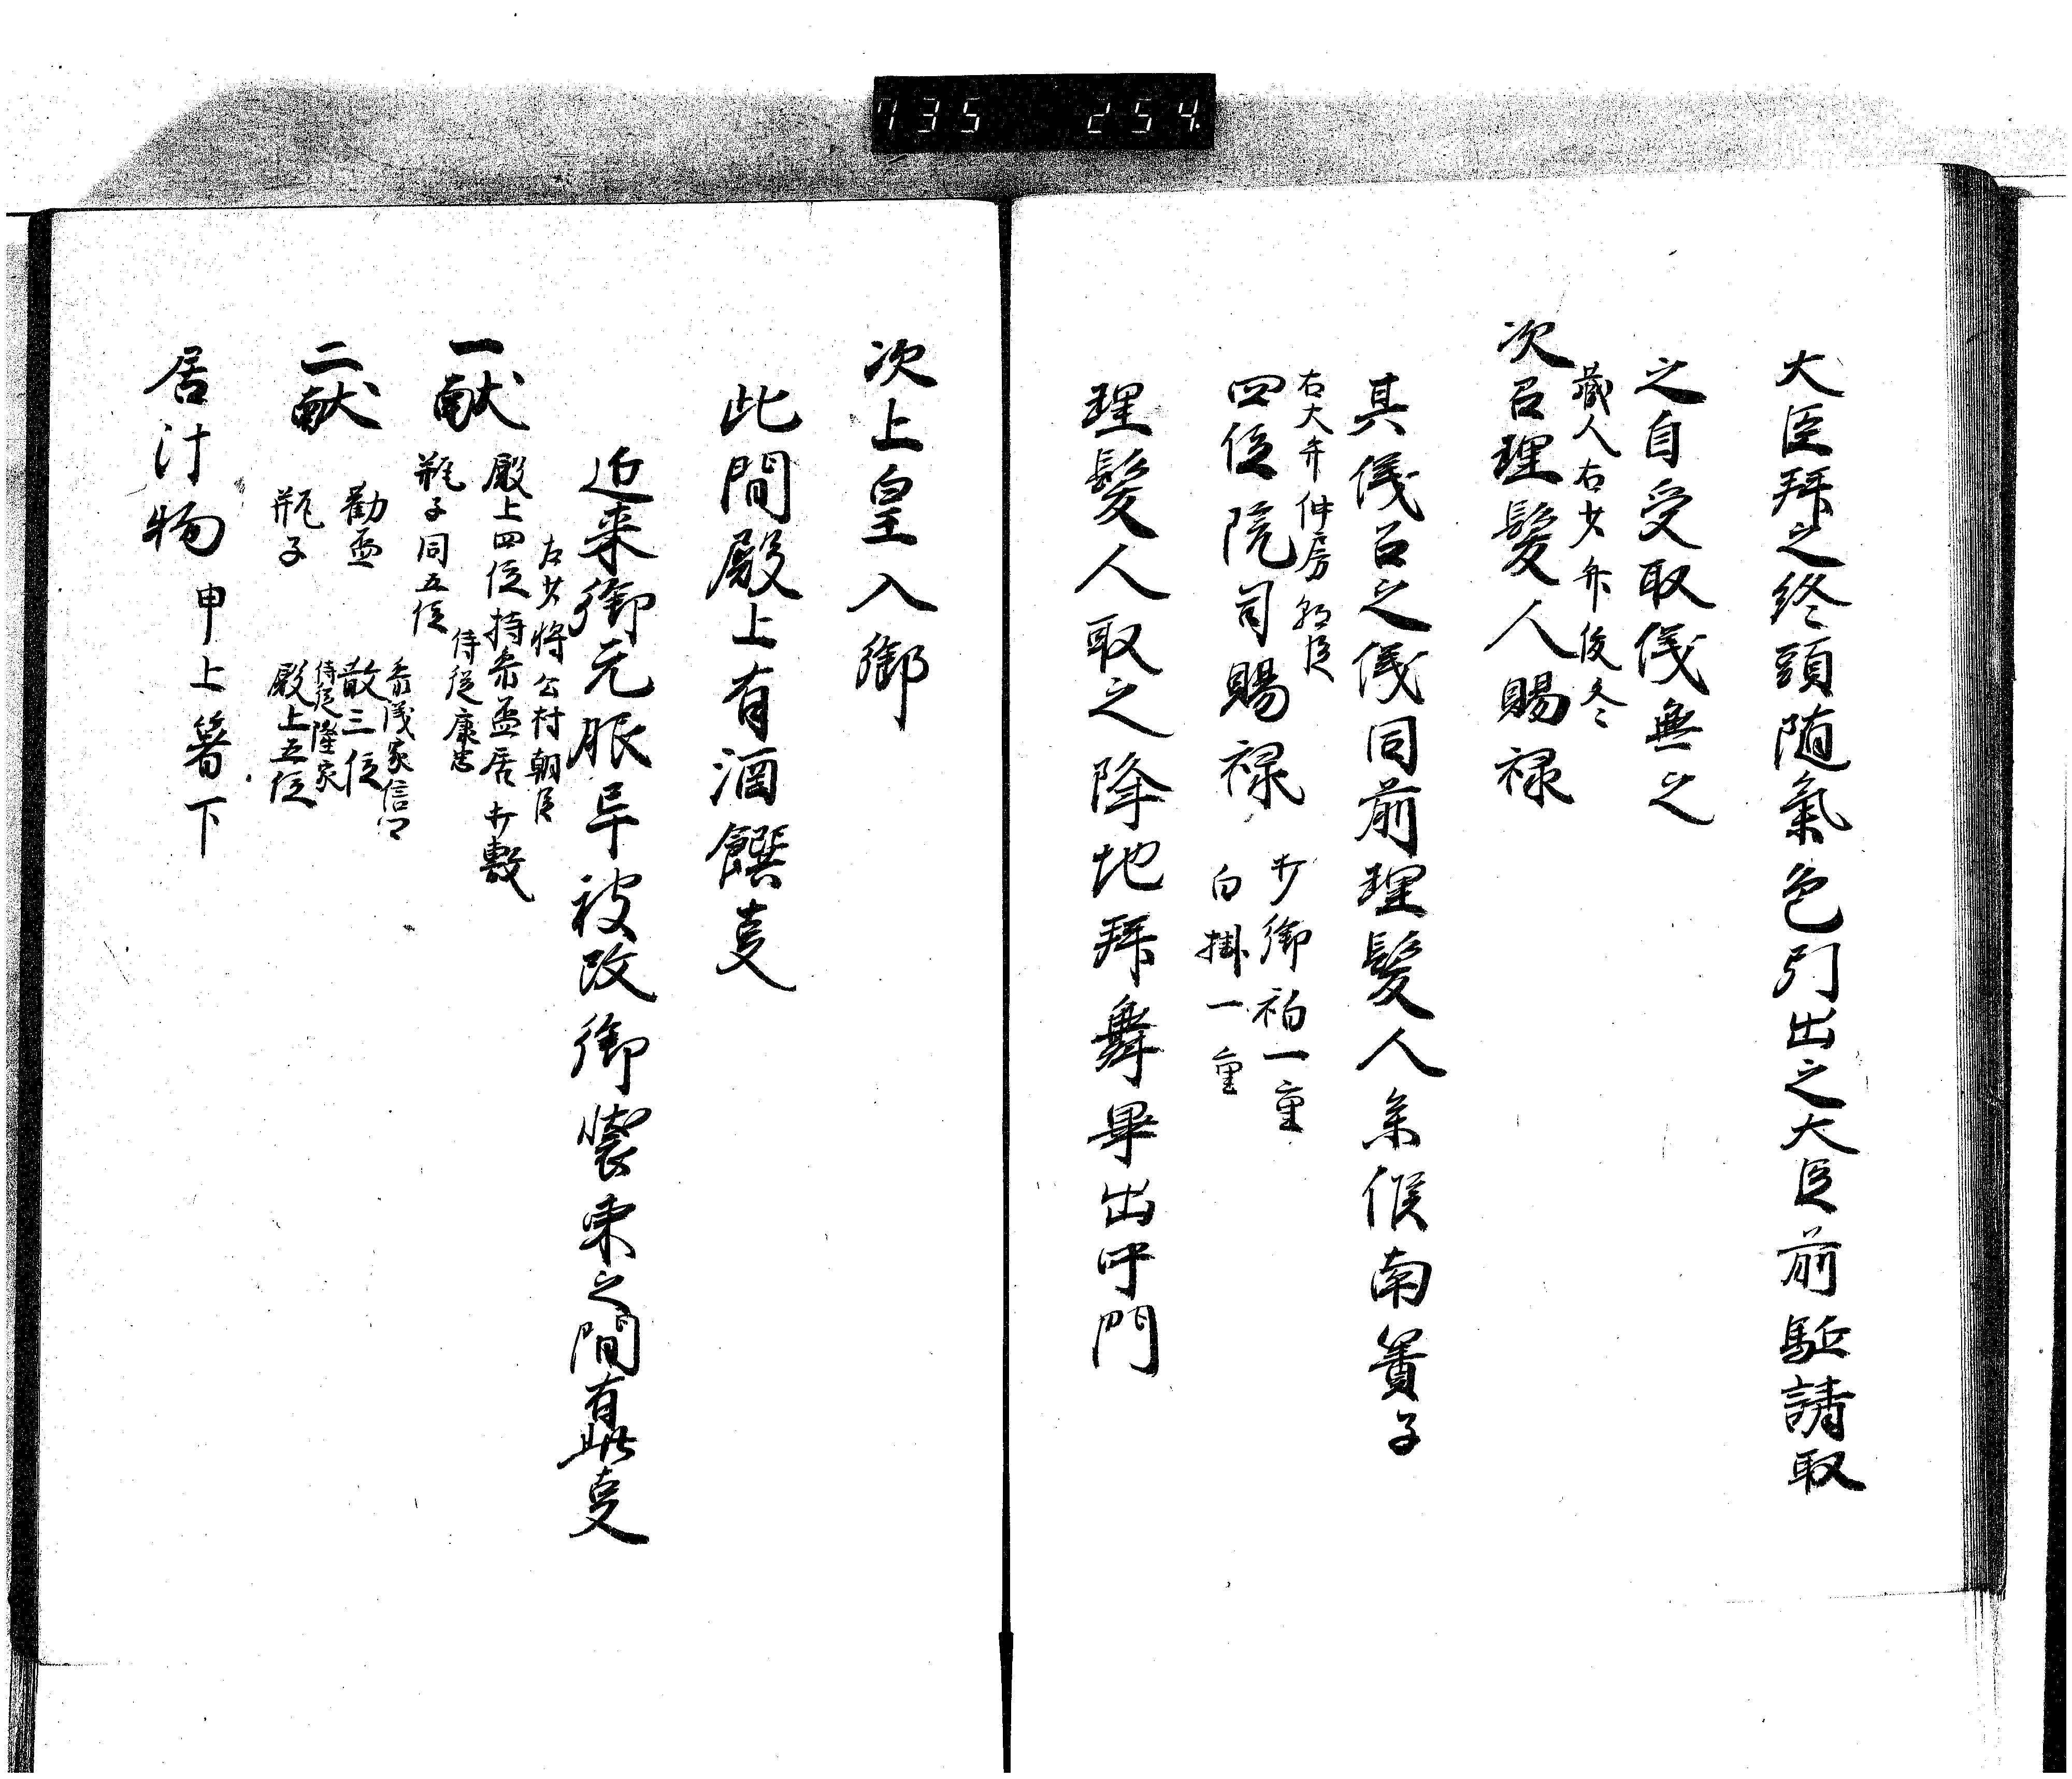 735 254
大臣拜之終頭随氣色引出之大臣前駈請取
之自受取儀無之
蔵人右少弁俊冬
次召理髪人賜禄
其儀召之儀同前理髪人参候南簀子
右大弁仲房朝臣
四位院司賜禄
打御衵一重
白掛一重
理髪人取之降地拜舞畢出中門
次上皇入御
此間殿上有酒饌事
近来御元服早被改御装束之間有此事
一献
左少将公村朝臣
殿上四位持参盃居打敷
瓶子同五位
侍従康忠
二献
勸盃
参議家信卿
散三位
瓶子
侍従隆家
殿上五位
居汁物
申上箸下